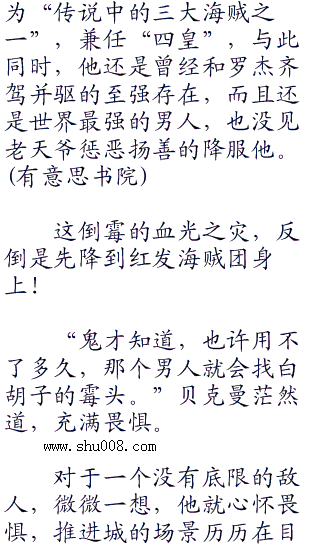 为“传说中的三大海贼之
一”，兼任“四皇”，与此
同时，他还是曾经和罗杰齐
驾并驱的至强存在，而且还
是世界最强的男人，也没见
老天爷惩恶扬善的降服他。
(有意思书院)
这倒霉的血光之灾，反
倒是先降到红发海贼团身
上！
“鬼才知道，也许用不
了多久，那个男人就会找白
胡子的霉头。”贝克曼茫然
道，充满畏惧。
www.shu008.com
对于一个没有底限的敌
人，微微一想，他就心怀畏
惧，推进城的场景历历在目